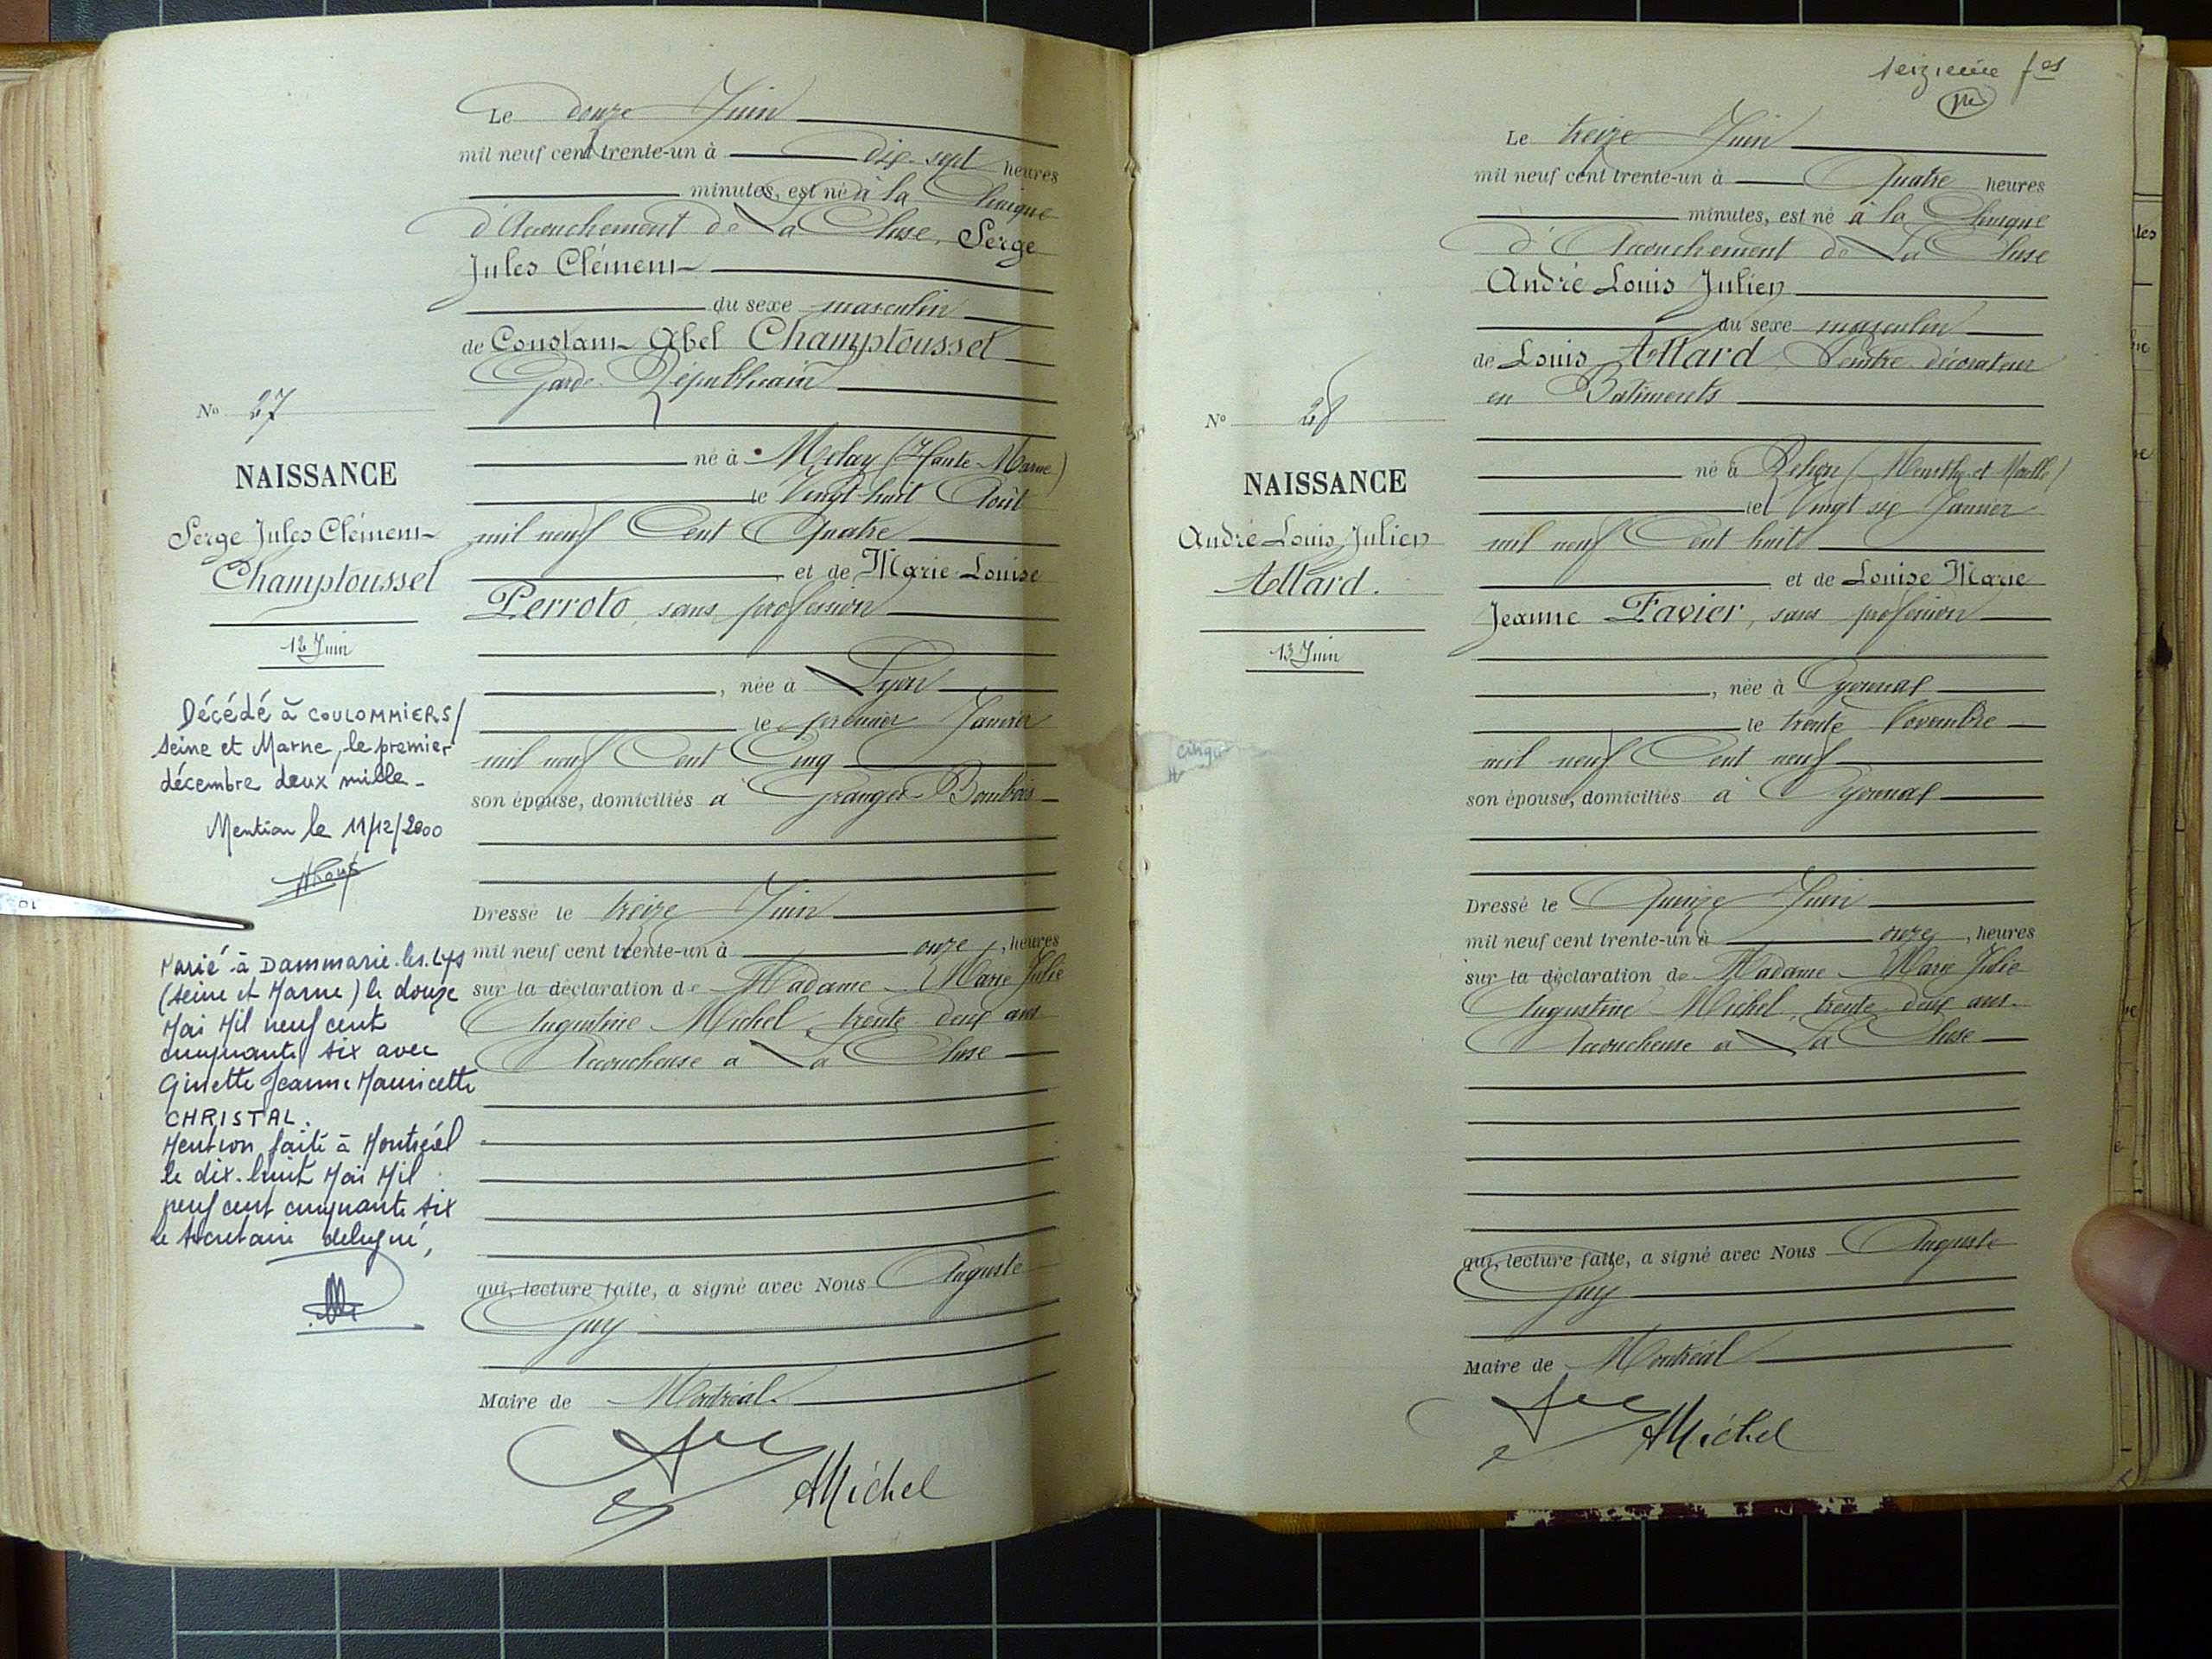 Le douze Juin
mil neuf cent trente-un à dix-sept heures
minutes, est né à la Clinique
d'Accouchement de La Cluse, Serge
Jules Clément
du sexe masculin
de Constant Abel Champtoussel
Garde Républicain
né à Melay (Haute-Marne)
le Vingt-huit Août
mil neuf Cent Quatre
et de Marie-Louise
Perroto, sans profession
, née à Lyon
le premier Janvier
mil neuf Cent Cinq
son épouse, domiciliés à
Dressé le treize Juin
mil neuf cent trente-un à onze, heures
sur la déclaration de Madame Marie Julie
Augustine Michel, trente-deux ans
Accoucheuse à La Cluse
qui, lecture faite, a signé avec Nous Auguste
Guy
Maire de Montréal.
AMichel
No 27
NAISSANCE
Serge Jules Clément
Champtoussel
12 Juin
Décédé à COULOMMIERS/
Seine et Marne, le premier
décembre deux mille.
Mention le 11/12/2000
Marié à Dammarie-les-Lys
(Seine et Marne) le douze
Mai Mil neuf cent
cinquante six avec
Ginette Jeanne Mauricette
CHRISTAL.
Mention faite à Montréal
le dix-huit Mai Mil
neuf cent cinquante six
le secrétaire délégué,
seizième
Le treize Juin
mil neuf cent trente-un à Quatre heures
minutes, est né à la Clinique
d'Accouchement de La Cluse
André Louis Julien
du sexe masculin
de Louis Allard, Peintre-décorateur
en Batiments
né à Rehon (Meurthe-et-Moselle)
le Vingt six Janvier
mil neuf Cent huit
et de Louise Marie
Jeanne Favier, sans profession
, née à Oyonnax
le trente Novembre
mil neuf Cent neuf
son épouse, domiciliés à Oyonnax
Dressé le Quinze Juin
mil neuf cent trente-un à onze, heures
sur la déclaration de Madame Marie Julie
Augustine Michel, trente-deux ans
Accoucheuse à La Cluse
qui, lecture faite, a signé avec Nous Auguste
Guy
Maire de Montréal
AMichel
No 28
NAISSANCE
André Louis Julien
Allard.
13 Juin